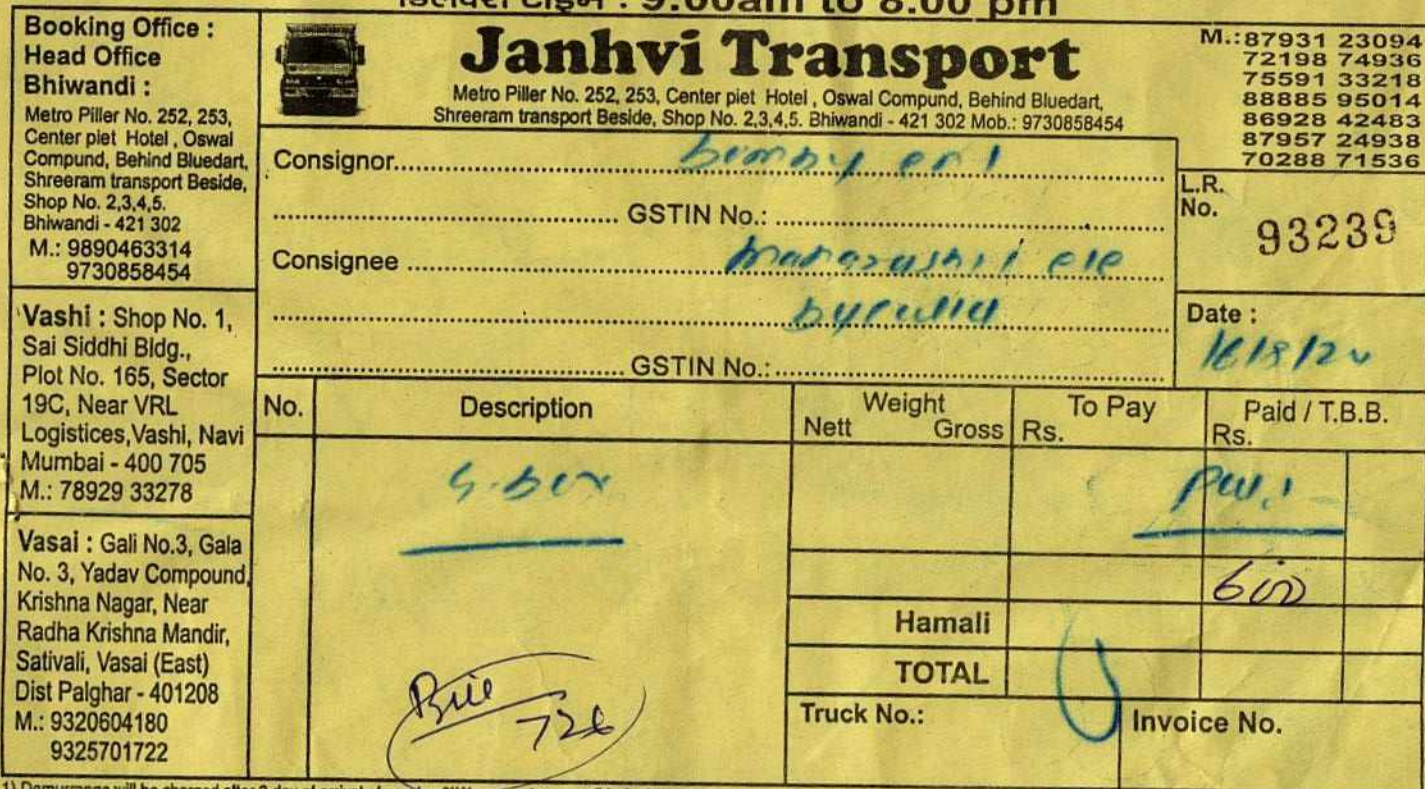 टाइम : 9.00am to 8.00 pm
Booking Office :
Head Office
Bhiwandi :
Metro Piller No. 252, 253,
Center piet Hotel , Oswal
Compund, Behind Bluedart,
Shreeram transport Beside,
Shop No. 2,3,4,5.
Bhiwandi - 421 302
M.: 9890463314
9730858454
Vashi : Shop No. 1,
Sai Siddhi Bldg.,
Plot No. 165, Sector
19C, Near VRL
Logistices,Vashi, Navi
Mumbai - 400 705
M.: 78929 33278
Vasai : Gali No.3, Gala
No. 3, Yadav Compound,
Krishna Nagar, Near
Radha Krishna Mandir,
Sativali, Vasai (East)
Dist Palghar - 401208
M.: 9320604180
9325701722
Janhvi Transport
Metro Piller No. 252, 253, Center piet Hotel , Oswal Compund, Behind Bluedart,
Shreeram transport Beside, Shop No. 2,3,4,5. Bhiwandi - 421 302 Mob.: 9730858454
M.:87931 23094
72198 74936
75591 33218
88885 95014
86928 42483
87957 24938
70288 71536
Consignor
GSTIN No.:
Consignee
GSTIN No.:
L.R.
No. 93239
Date :
No. Description Weight To Pay Paid / T.B.B.
Nett Gross Rs. Rs.
600
Hamali
TOTAL
726
Truck No.: Invoice No.